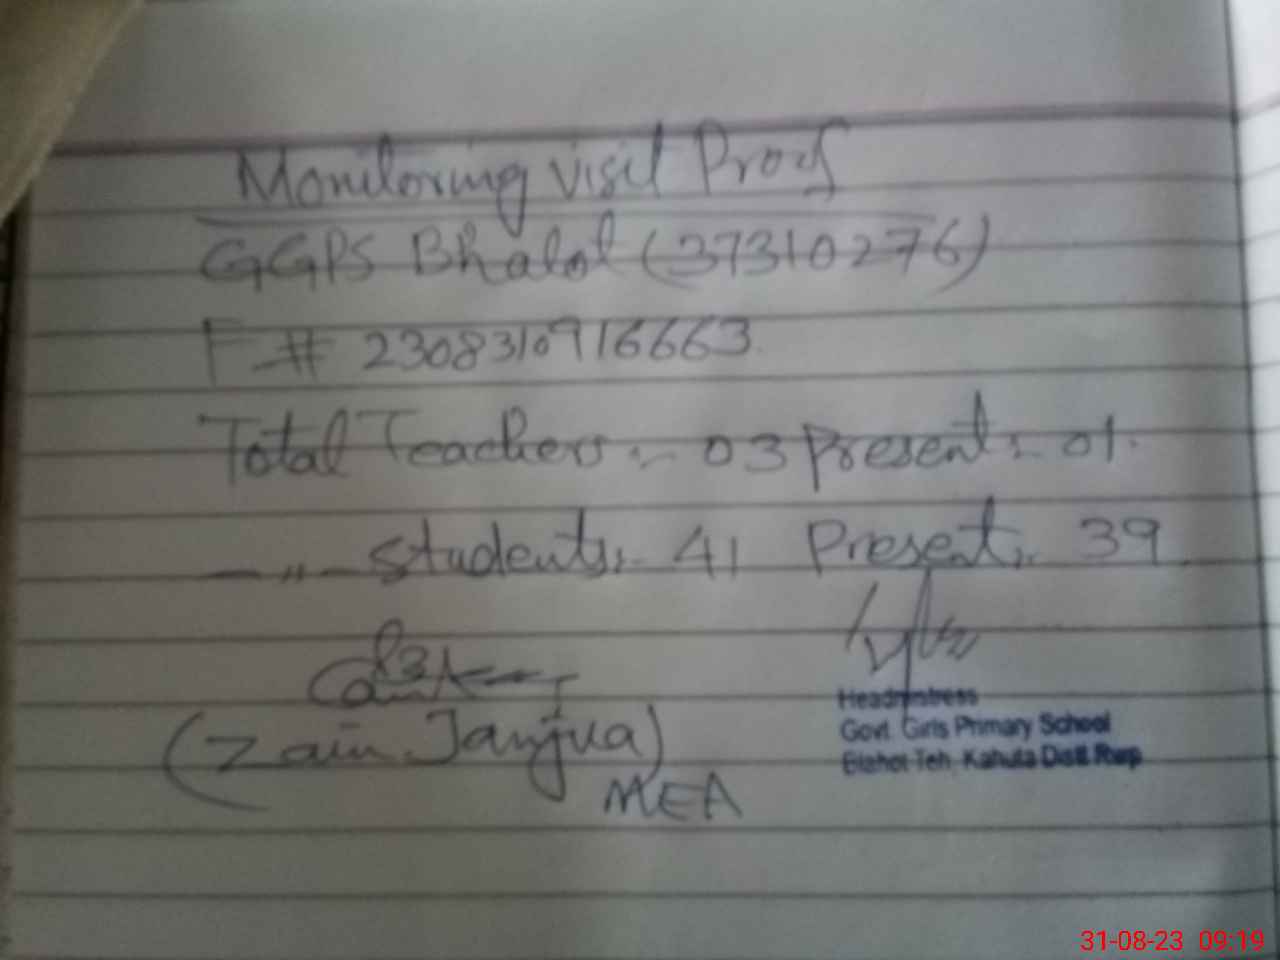 Monitoring Visit Proof
GGPS Bhalot (37310276)
F # 2308310916663
Total Teachers:- 03 Present:- 01.
—"— Students:- 41 Present:- 39
(Zain Janjua)
MEA
Headmistress
Govt. Girls Primary School
Teh. Kahuta Distt Rwp
31-08-23 09:19